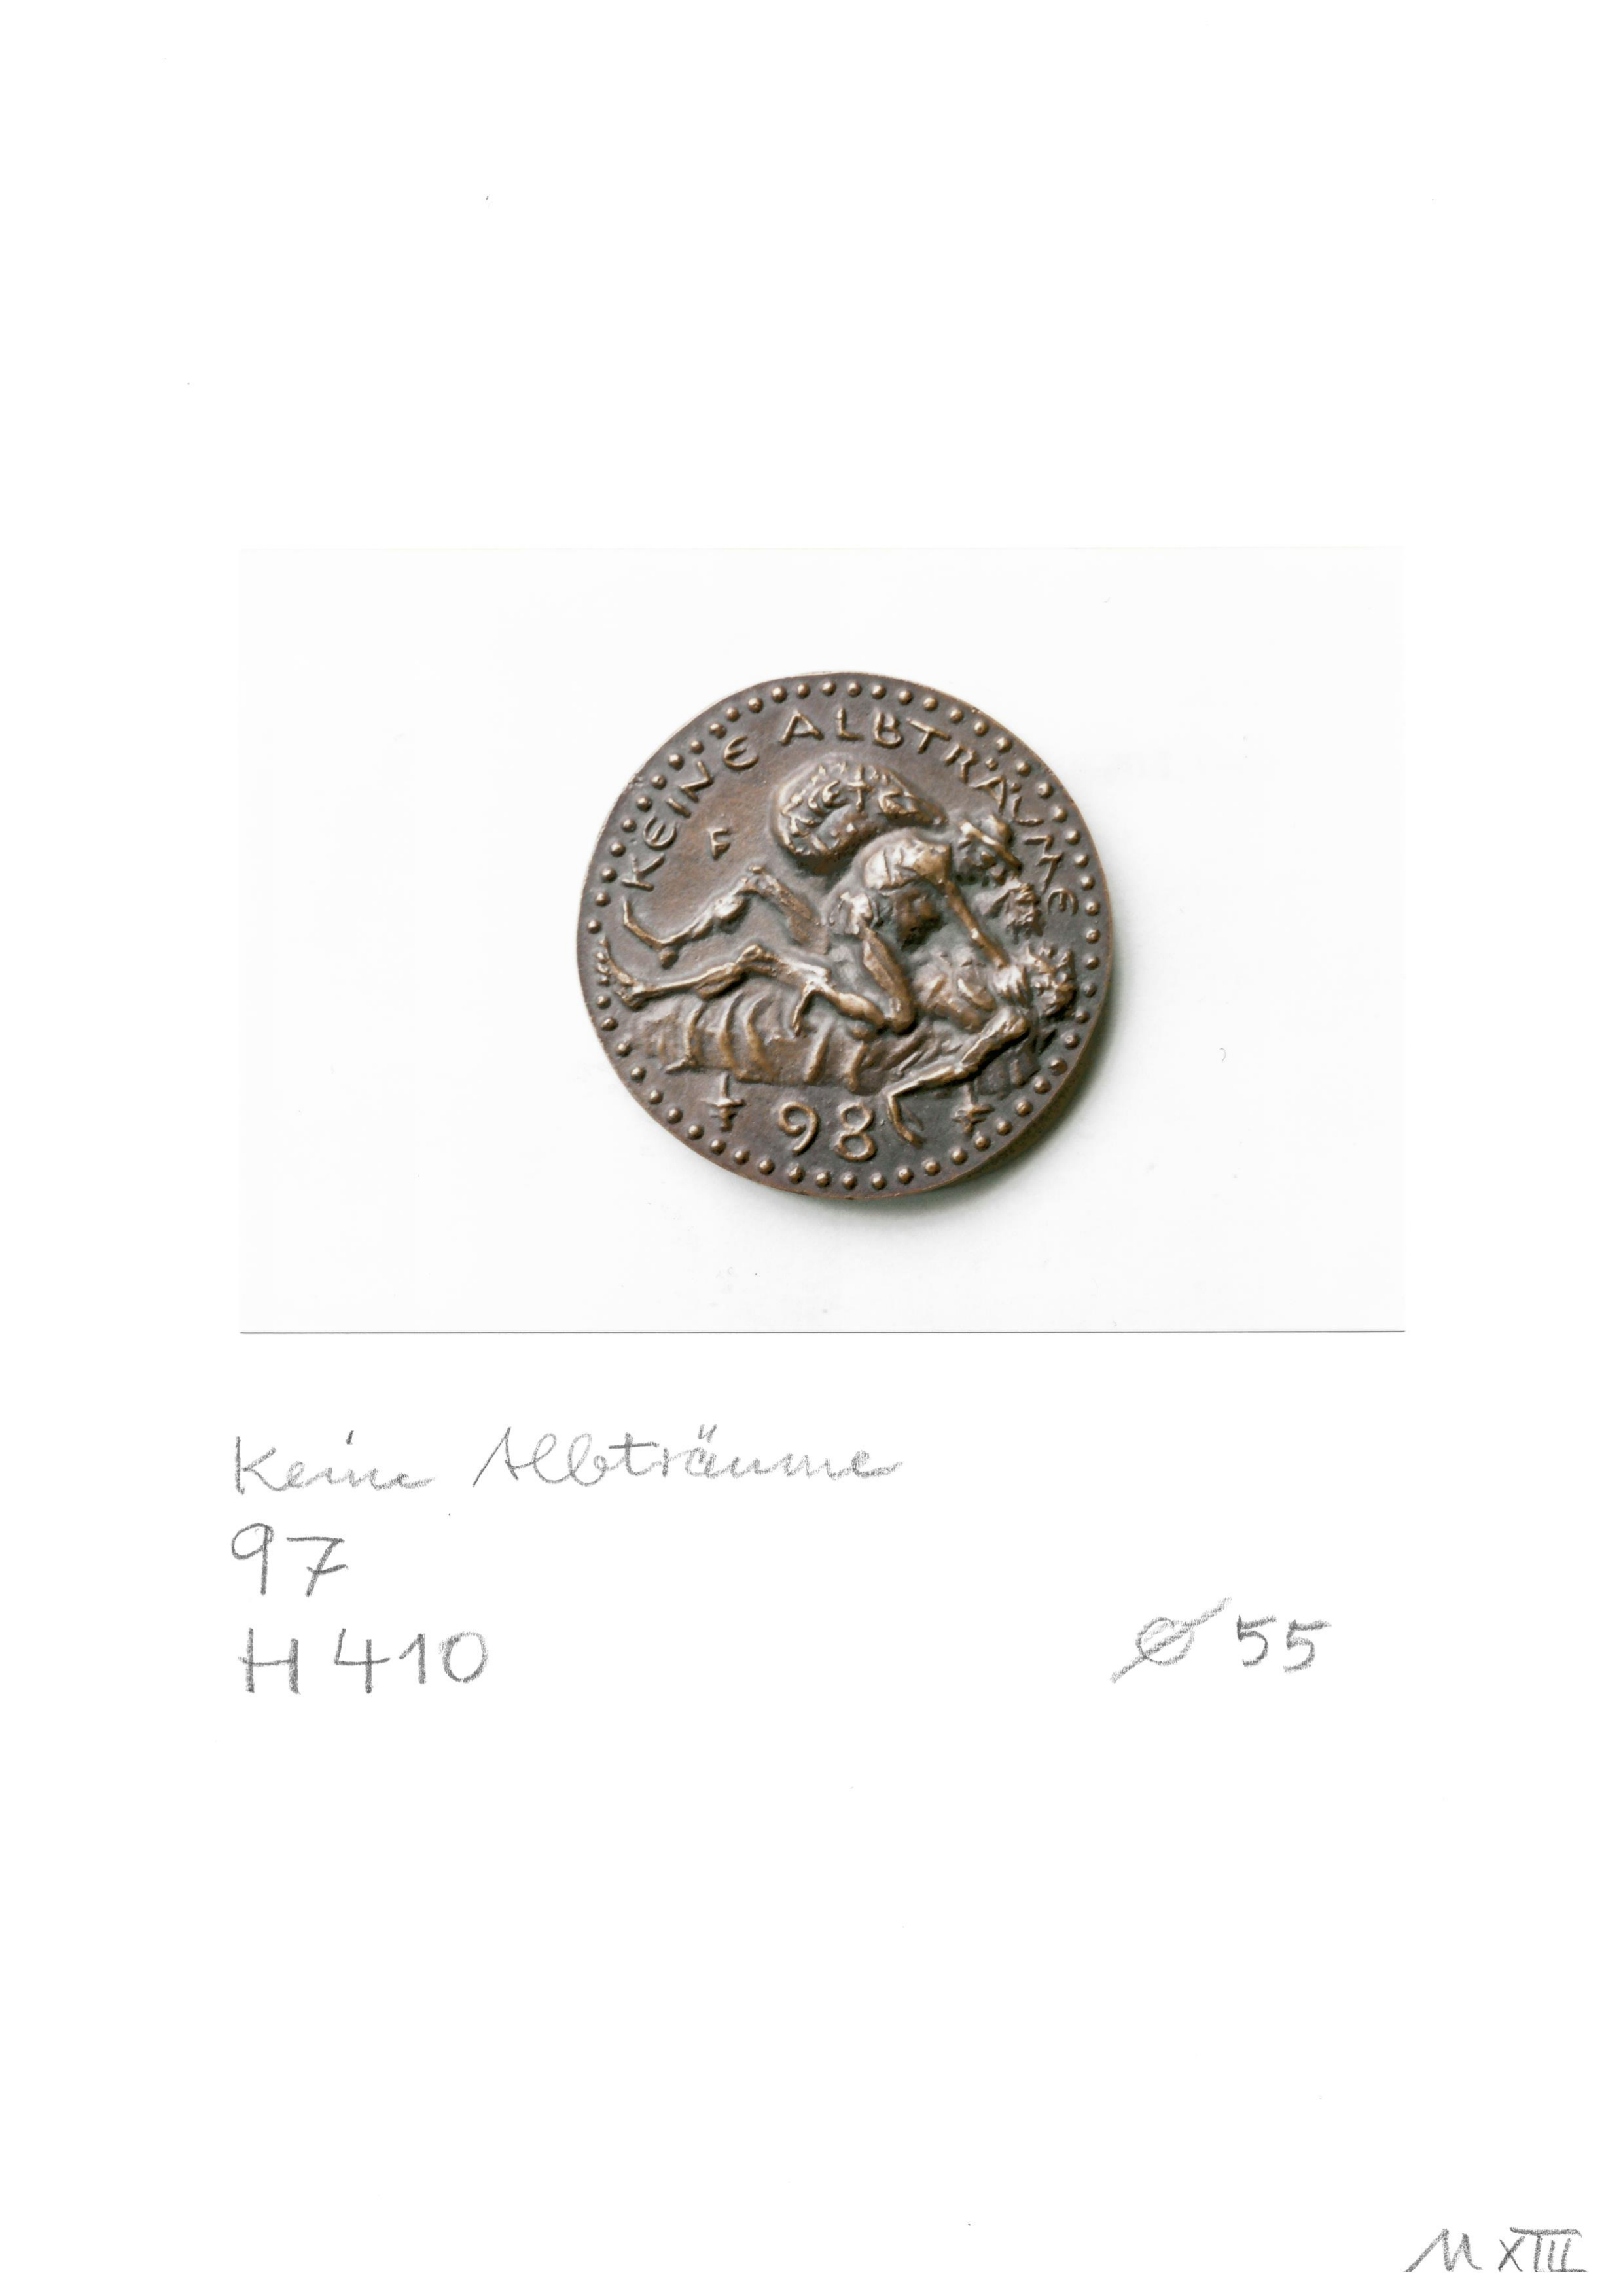 KEINE ALBTRÄUME
F
98
Keine Albträume
97
H 410
⌀ 55
M XIII